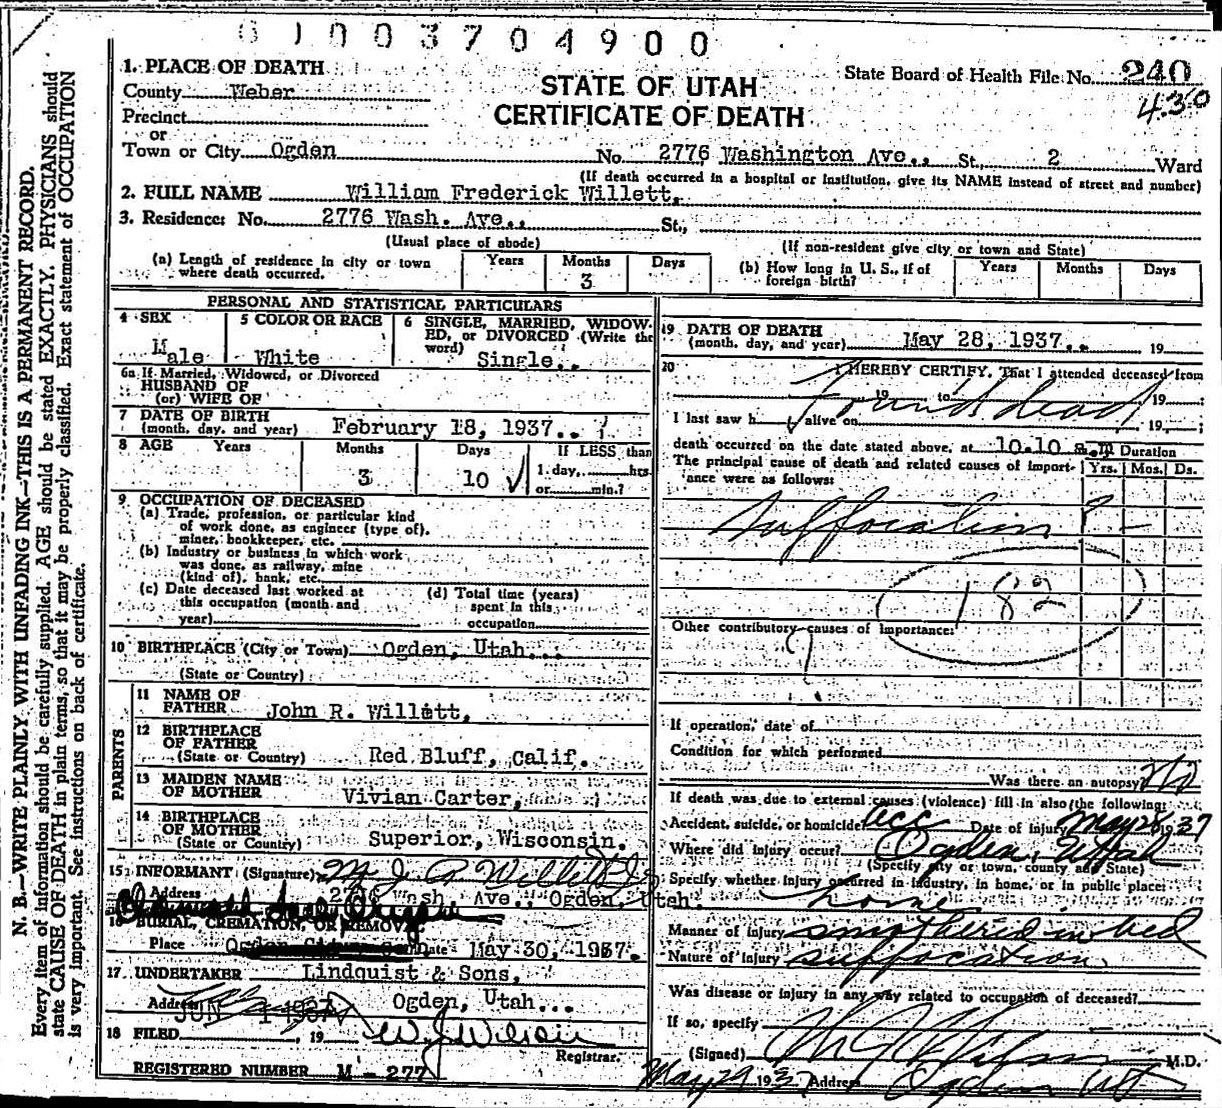 01003704900
1. PLACE OF DEATH
STATE OF UTAH
CERTIFICATE OF DEATH
State Board of Health File No. 240
430
County Weber
Precinct
or
Town or City Ogden No. 2776 Washington Ave., St., 2 Ward
(If death occurred in a hospital or institution, give its NAME instead of street and number)
2. FULL NAME William Frederick Willett,
3. Residence: No. 2776 Wash. Ave., St.,
(Usual place of abode) (If non-resident give city or town and State)
(a) Length of residence in city or town where death occurred. Years Months 3 Days
(b) How long in U. S., if of foreign birth? Years Months Days
PERSONAL AND STATISTICAL PARTICULARS
4 SEX Male
5 COLOR OR RACE White
6 SINGLE, MARRIED, WIDOWED, or DIVORCED (Write the word) Single..
6a If Married, Widowed, or Divorced
HUSBAND OF
(or) WIFE OF
7 DATE OF BIRTH
(month, day, and year) February 18, 1937..
8 AGE Years Months 3 Days 10 If LESS than
1 day, hrs.
or min.?
9 OCCUPATION OF DECEASED
(a) Trade, profession, or particular kind
of work done, as engineer (type of),
miner, bookkeeper, etc.
(b) Industry or business in which work
was done, as railway, mine
(kind of), bank, etc.
(c) Date deceased last worked at
this occupation (month and
year)
(d) Total time (years)
spent in this
occupation
10 BIRTHPLACE (City or Town) Ogden, Utah...
(State or Country)
PARENTS
11 NAME OF
FATHER John R. Willett,
12 BIRTHPLACE
OF FATHER
(State or Country) Red Bluff, Calif.
13 MAIDEN NAME
OF MOTHER Vivian Carter,
14 BIRTHPLACE
OF MOTHER
(State or Country) Superior, Wisconsin.
15 INFORMANT (Signature) Willett
Address 2776 Wash Ave., Ogden, Utah.
16 BURIAL, CREMATION, OR REMOVAL
Place Ogden Date May 30, 1937.
17 UNDERTAKER Lindquist & Sons,
Address Ogden, Utah...
JUN 1 1937
18 FILED , 19 W. J. Wilson
Registrar.
REGISTERED NUMBER M - 277
19 DATE OF DEATH
(month, day, and year) May 28, 1937.. 19
20 I HEREBY CERTIFY, That I attended deceased from
19 to 19
Found dead
I last saw h alive on , 19 ;
death occurred on the date stated above, at 10.10 a.m
Duration
The principal cause of death and related causes of importance were as follows: Yrs. Mos. Ds.
Suffocation ? -
182
Other contributory causes of importance:
If operation, date of
Condition for which performed
Was there an autopsy No
If death was due to external causes (violence) fill in also the following:
Accident, suicide, or homicide? acc Date of injury May 28 1937
Where did injury occur? Ogden, Utah
(Specify city or town, county and State)
Specify whether injury occurred in industry, in home, or in public place:
home
Manner of injury smothered in bed
Nature of injury suffocation
Was disease or injury in any way related to occupation of deceased?
If so, specify
(Signed) M.D.
May 29 1937 Address Ogden Ut
N. B.—WRITE PLAINLY, WITH UNFADING INK—THIS IS A PERMANENT RECORD.
Every item of information should be carefully supplied. AGE should be stated EXACTLY. PHYSICIANS should
state CAUSE OF DEATH in plain terms, so that it may be properly classified. Exact statement of OCCUPATION
is very important. See instructions on back of certificate.